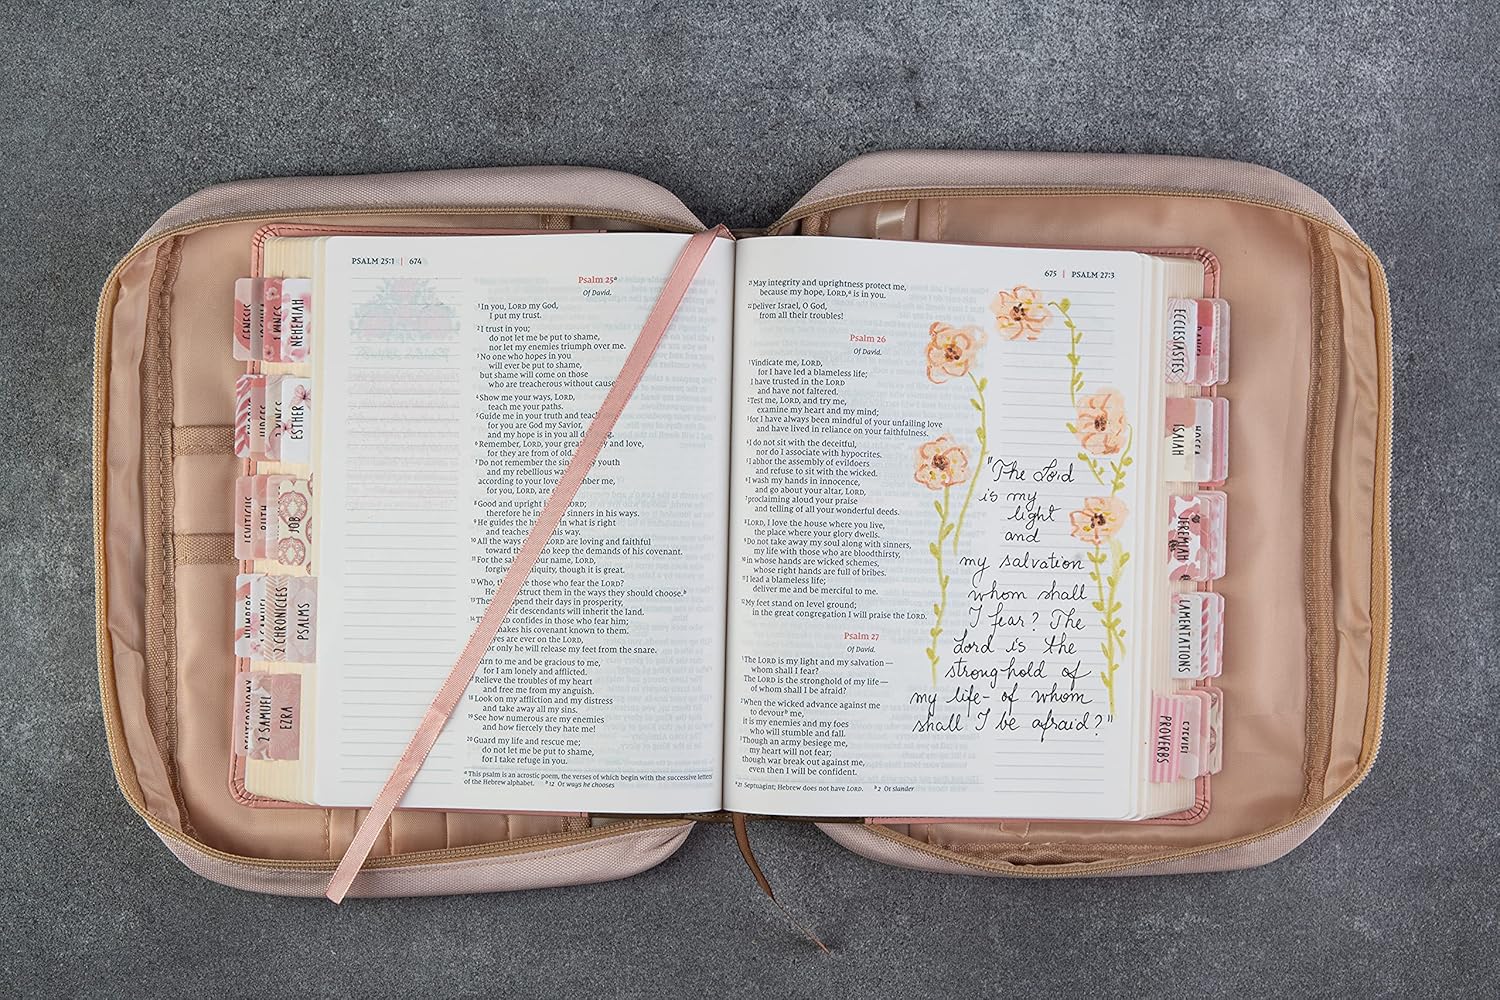 PSALM 25:1 | 674
Psalm 25a
Of David.
1In you, LORD my God,
I put my trust.
2I trust in you;
do not let me be put to shame,
nor let my enemies triumph over me.
3No one who hopes in you
will ever be put to shame,
but shame will come on those
who are treacherous without cause
4Show me your ways, LORD,
teach me your paths.
5Guide me in your truth and
for you are God my Savior,
and my hope is in you all
6Remember, LORD, your and love,
for they are from of old.
7Do not remember the youth
and my rebellious
according to your love me,
for you, LORD, are
8Good and upright is
therefore he in in his ways.
9He guides the in what is right
and teaches way.
10All the ways of are loving and faithful
toward keep the demands of his covenant.
11For the name, LORD,
though it is great.
12Who, those who fear the LORD?
them in the ways they should choose.b
their days in prosperity,
descendants will inherit the land.
confides in those who fear him;
makes his covenant known to them.
eyes are ever on the LORD,
only he will release my feet from the snare.
to me and be gracious to me,
for I am lonely and afflicted.
Relieve the troubles of my heart
and free me from my anguish.
18Look on my affliction and my distress
and take away all my sins.
19See how numerous are my enemies
and how fiercely they hate me!
20Guard my life and rescue me;
do not let me be put to shame,
for I take refuge in you.
a This psalm is an acrostic poem, the verses of which begin with the successive letters
of the Hebrew alphabet. b 12 Or ways he chooses
675 | PSALM 27:3
21May integrity and uprightness protect me,
because my hope, LORD,a is in you.
22Deliver Israel, O God,
from all their troubles!
Psalm 26
Of David.
1Vindicate me, LORD,
for I have led a blameless life;
I have trusted in the LORD
and have not faltered.
2Test me, LORD, and try me,
examine my heart and my mind;
3for I have always been mindful of your unfailing love
and have lived in reliance on your faithfulness.
4I do not sit with the deceitful,
nor do I associate with hypocrites.
5I abhor the assembly of evildoers
and refuse to sit with the wicked.
6I wash my hands in innocence,
and go about your altar, LORD,
7proclaiming aloud your praise
and telling of all your wonderful deeds.
8LORD, I love the house where you live,
the place where your glory dwells.
9Do not take away my soul along with sinners,
my life with those who are bloodthirsty,
10in whose hands are wicked schemes,
whose right hands are full of bribes.
11I lead a blameless life;
deliver me and be merciful to me.
12My feet stand on level ground;
in the great congregation I will praise the LORD.
Psalm 27
Of David.
1The LORD is my light and my salvation—
whom shall I fear?
The LORD is the stronghold of my life—
of whom shall I be afraid?
2When the wicked advance against me
to devourb me,
it is my enemies and my foes
who will stumble and fall.
3Though an army besiege me,
my heart will not fear;
though war break out against me,
even then I will be confident.
a 21 Septuagint; Hebrew does not have LORD. b 2 Or slander
"The Lord
is my
light
and
my salvation
whom shall
I fear? The
Lord is the
stronghold of
my life- of whom
shall I be afraid?"
GENESIS
NEHEMIAH
ESTHER
LEVITICUS
RUTH
JOB
NUMBERS
1 SAMUEL
2 CHRONICLES
PSALMS
DEUTERONOMY
2 SAMUEL
EZRA
ECCLESIASTES
DANIEL
ISAIAH
HOSEA
JEREMIAH
LAMENTATIONS
PROVERBS
EZEKIEL